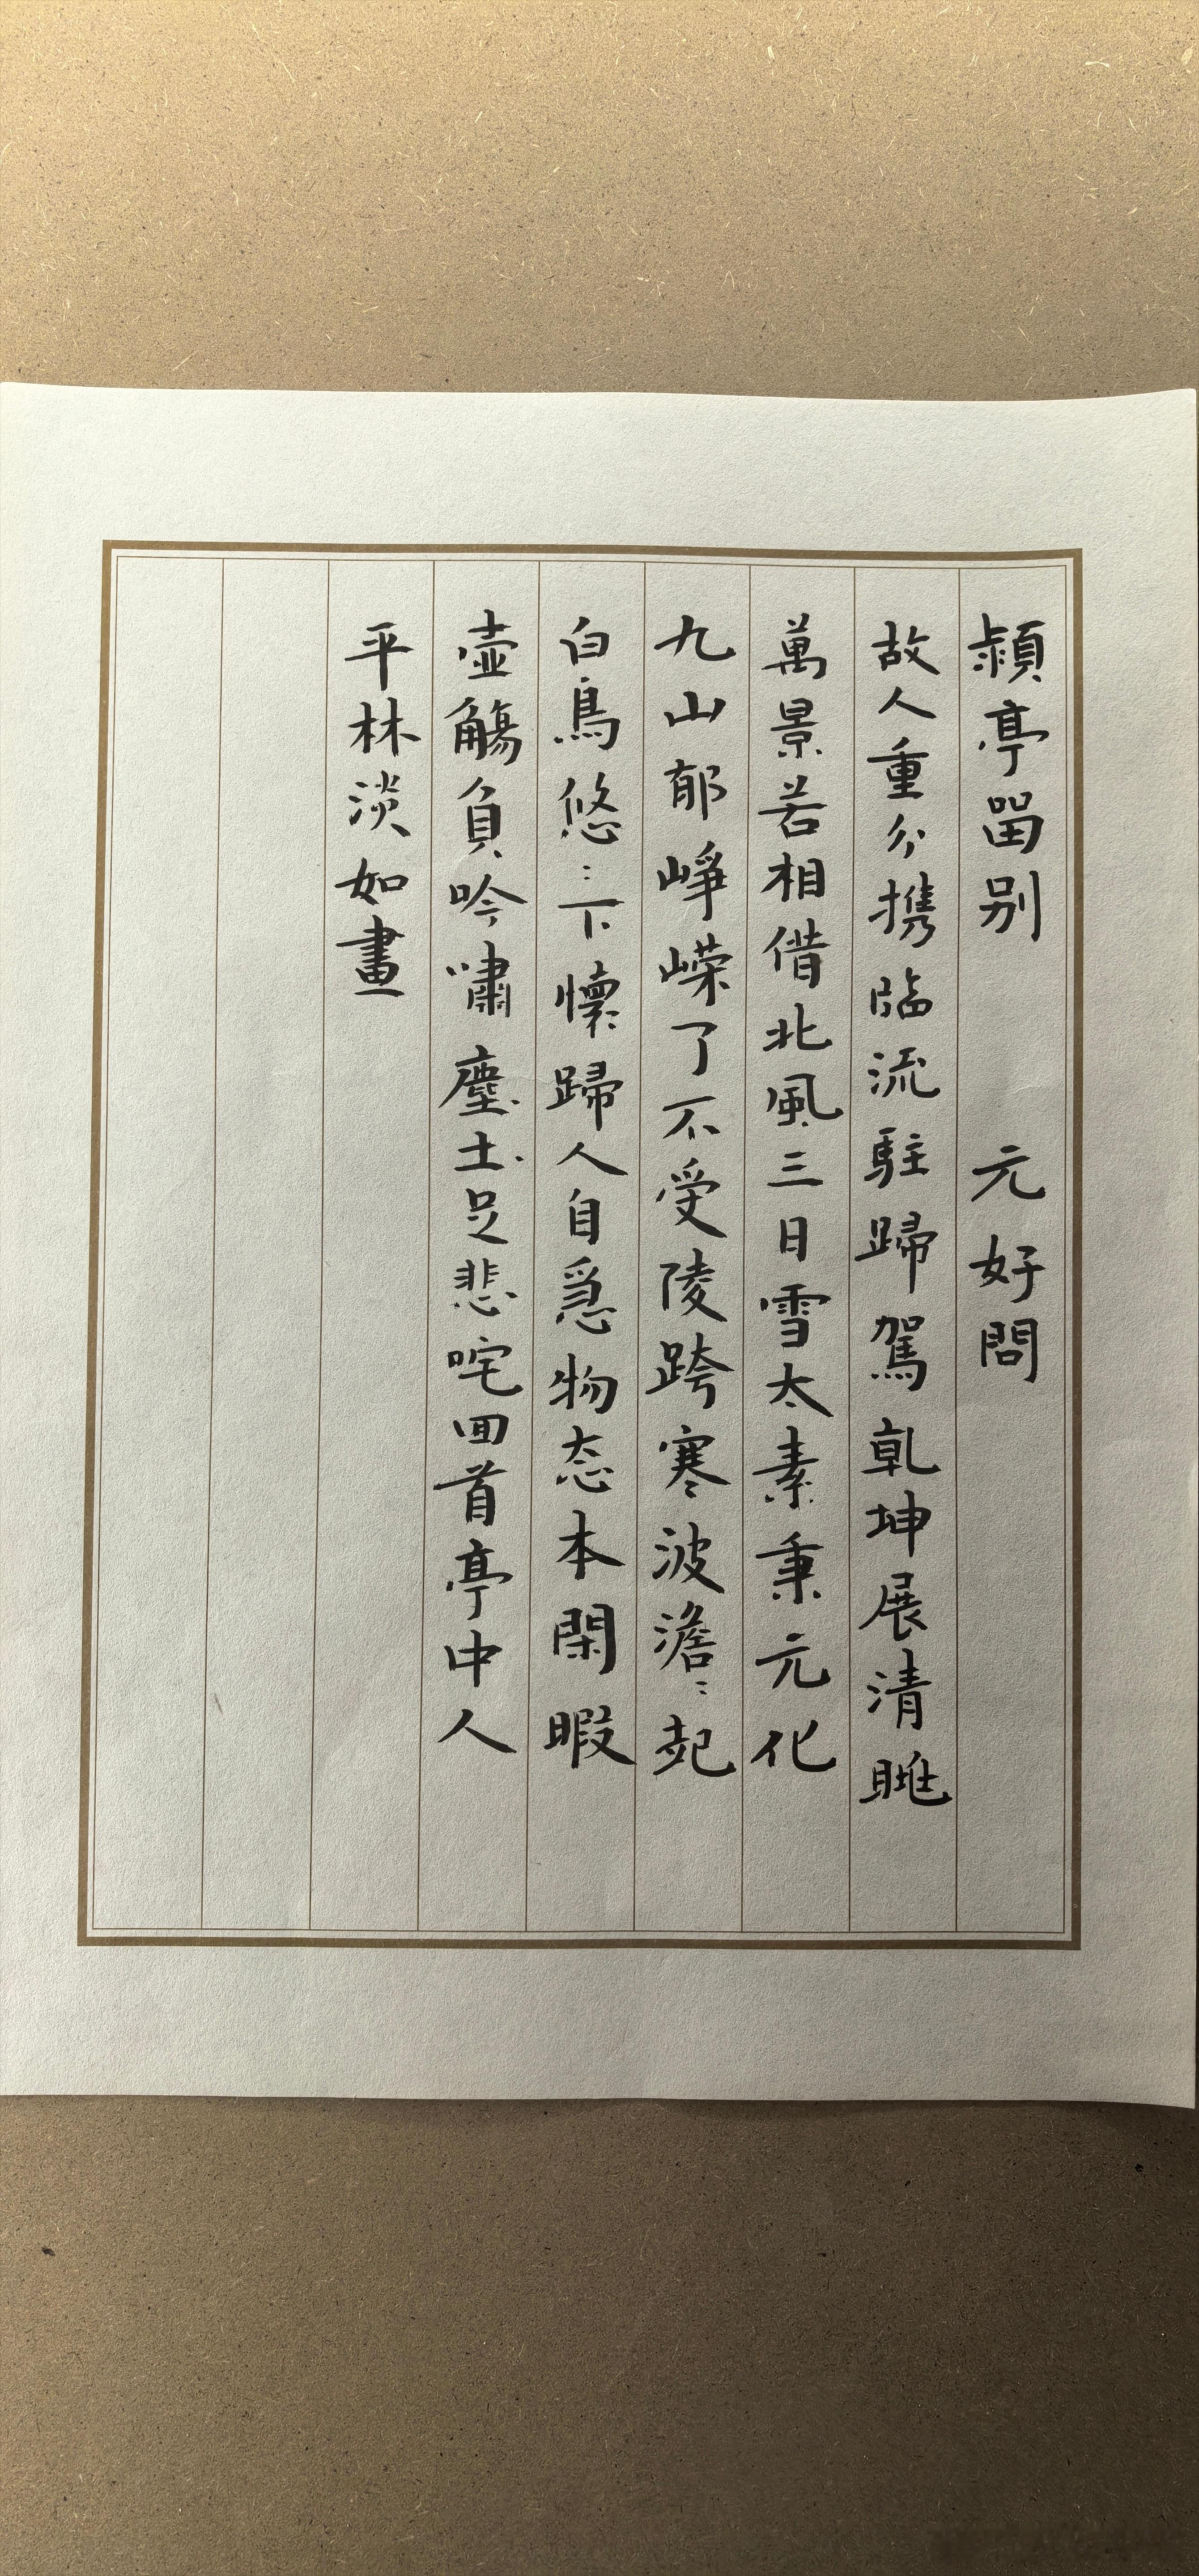 潁亭留别　元好問
故人重分携臨流駐歸駕乾坤展清眺
萬景若相借北風三日雪太素秉元化
九山郁崢嵘了不受陵跨寒波澹〻起
白鳥悠〻下懷歸人自急物态本閑暇
壺觴負吟嘯塵土足悲咤囬首亭中人
平林淡如畫